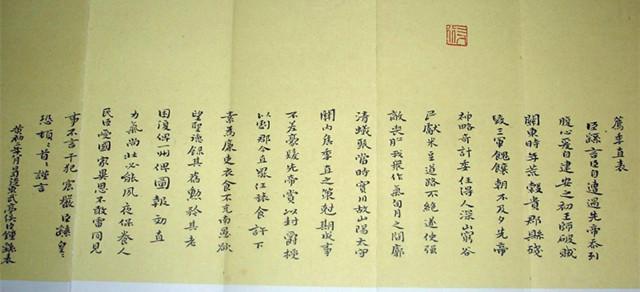 薦季直表
臣繇言臣自遭遇先帝忝列
腹心爰自建安之初王師破賊
關東時年荒穀貴郡縣殘
毀三軍餽饟朝不及夕先帝
神略奇計委任得人深山窮谷
民獻米豆道路不絕遂使強
敵喪膽我衆作氣旬月之間廓
清蟻聚當時實用故山陽太守
關內侯季直之策剋期成事
不差豪髮先帝賞以封爵授
以劇郡今直罷任旅食許下
素為廉吏衣食不充臣愚欲
望聖德錄其舊勳矜其老
困復俾一州俾圖報效直
力氣尚壯必能夙夜保養人
民臣受國家異恩不敢雷同見
事不言干犯宸嚴臣繇皇々
恐頓々首々謹言
黃初二年八月日司徒東武亭侯臣鍾繇表